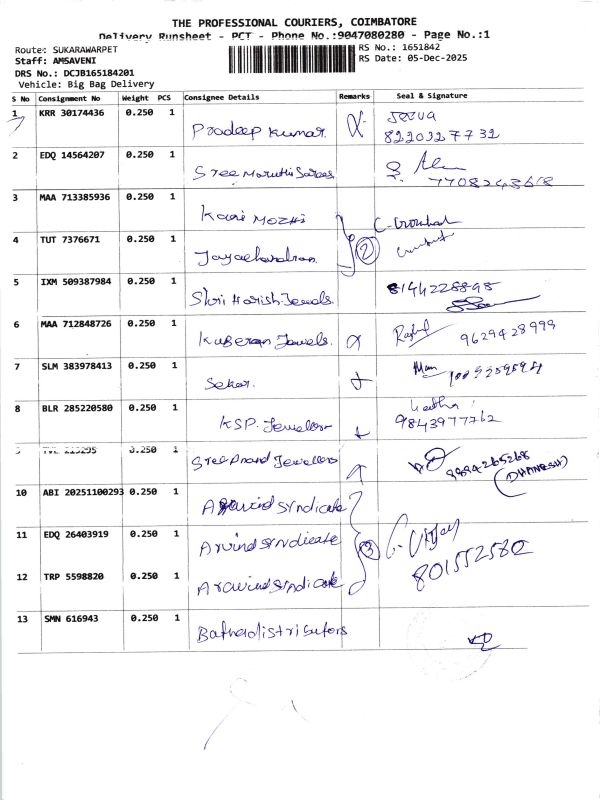 THE PROFESSIONAL COURIERS, COIMBATORE
Delivery Runsheet - PCT - Phone No.:9047080280 - Page No.:1
Route: SUKARAWARPET
RS No.: 1651842
Staff: AMSAVENI
RS Date: 05-Dec-2025
DRS No.: DCJB165184201
Vehicle: Big Bag Delivery
S No Consignment No Weight PCS Consignee Details Remarks Seal & Signature
1 KRR 30174436 0.250 1 Pradeep Kumar Jeeva
8220327732
2 EDQ 14564207 0.250 1 Sree Maruthi Sarees
7708243618
3 MAA 713385936 0.250 1 Kani Mozhi
4 TUT 7376671 0.250 1 Jayachandran 2
5 IXM 509387984 0.250 1 Shri Harish Jewels 8144228898
6 MAA 712848726 0.250 1 Kuberan Jewels. 9629428999
7 SLM 383978413 0.250 1 Sekar.
8 BLR 285220580 0.250 1 KSP. Jewellers
9843977762
0.250 1 Sree Anand Jewellers 9894265268
(DHANESH)
10 ABI 20251100293 0.250 1 Aravind Syndicate
11 EDQ 26403919 0.250 1 Arvind Syndicate 3 C. Vijay
12 TRP 5598820 0.250 1 Aravind Syndicate 801552582
13 SMN 616943 0.250 1